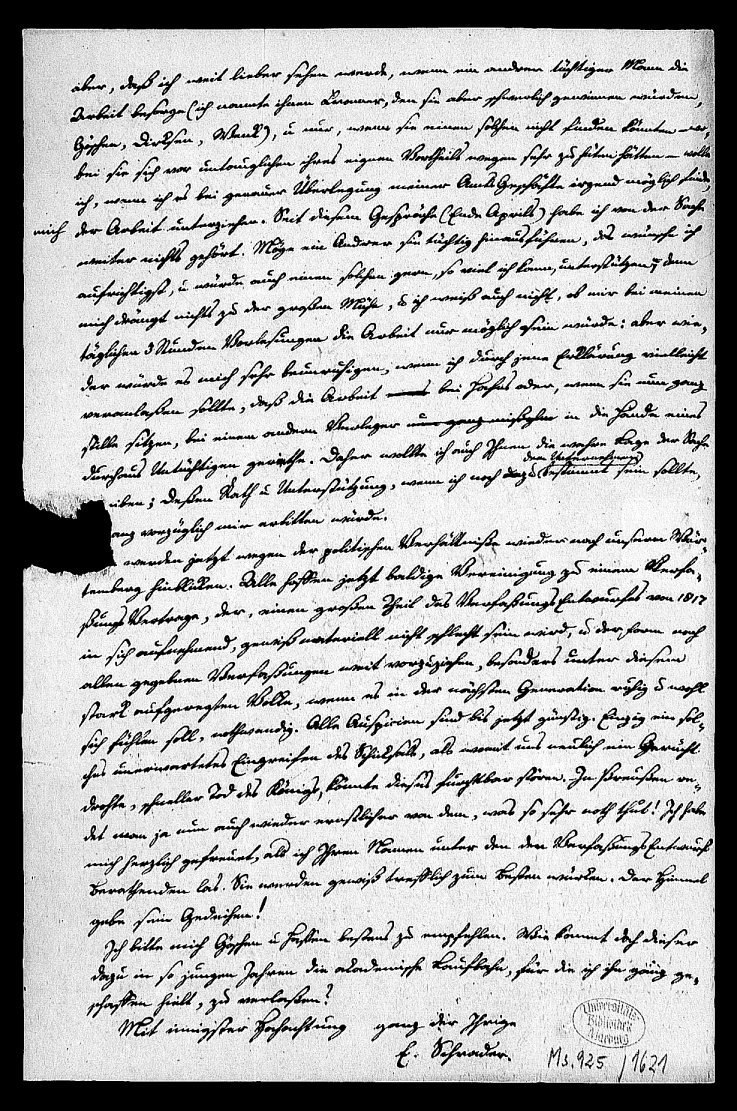 aber, daß ich weit lieber sehen werde, wenn ein anderer tüchtiger Mann die
Arbeit besorge (ich nannte ihnen Cramer, den sie aber schwerlich gewinnen würden,
Göschen, Dirksen, Wenck), u nur, wenn sie einen solchen nicht finden könnten – wo-
bei sie sich vor untauglichen ihres eignen Vortheils wegen sehr zu hüten hätten – wollte
ich, wenn ich es bei genauer Überlegung meiner Amts Geschäfte irgend möglich finde,
mich der Arbeit unterziehen. Seit diesem Gespräche (Ende Aprils) habe ich von der Sache
weiter nichts gehört. Möge ein Anderer sie tüchtig hinausführen, das wünsche ich
aufrichtigst, u würde auch einen solchen gern, so viel ich kann, unterstützen; denn
mich drängt nichts zu der großen Mühe, u ich weiß auch nicht, ob mir bei meinen
täglichen 3 Stunden Vorlesungen die Arbeit nur möglich sein würde: aber wie-
der würde es mich sehr beunruhigen, wenn ich durch jene Erklärung vielleicht
veranlaßen sollte, daß die Arbeit bei oder, wenn sie nun ganz
stille sitzen, bei einem andern Verleger in die Hände eines
durchaus Untüchtigen geriethe. Daher wollte ich auch Ihnen die wahre Lage der Sache
iben; deßen Rath u Unterstützung, wenn ich noch dem Unternehmen bestimmt sein sollte,
anz vorzüglich mir erbitten würde.
werden jetzt wegen der politischen Verhältniße wieder nach unserem Wür-
temberg hinblicken. Alle hoffen jetzt baldige Vereinigung zu einem Verfa-
ßungs Vertrage, der, einen großen Theil des Verfaßungs Entwurfes von 1817
in sich aufnehmend, gewiß materiell nicht schlecht sein wird, u der Form nach
allen gegebenen Verfaßungen weit vorzuziehen, besonders unter diesem
stark aufgeregten Volke, wenn es in der nächsten Generation ruhig u wohl
sich fühlen soll, nothwendig. Alle Auspicien sind bis jetzt günstig. Einzig ein sol-
ches unerwartetes Eingreifen des Schicksals, als womit uns neulich ein Gerücht
drohte, schneller Tod des Königs, könnte dieses furchtbar stören. In Preußen re-
det man ja nun auch wieder ernstlicher von dem, was so sehr noth thut! Ich habe
mich herzlich gefreut, als ich Ihren Namen unter den den Verfaßungs Entwurf
Berathenden las. Sie werden gewiß trefflich zum Besten würken. Der Himmel
gebe sein Gedeihen!
Ich bitte mich Göschen u bestens zu empfehlen. Wie kommt doch dieser
dazu in so jungen Jahren die akademische Laufbahn, für die ich ihn ganz ge-
schaffen hielt, zu verlaßen?
Mit innigster Hochachtung ganz der Ihrige
E. Schrader.
Universitäts
Bibliothek
Marburg
Ms. 925 / 1621